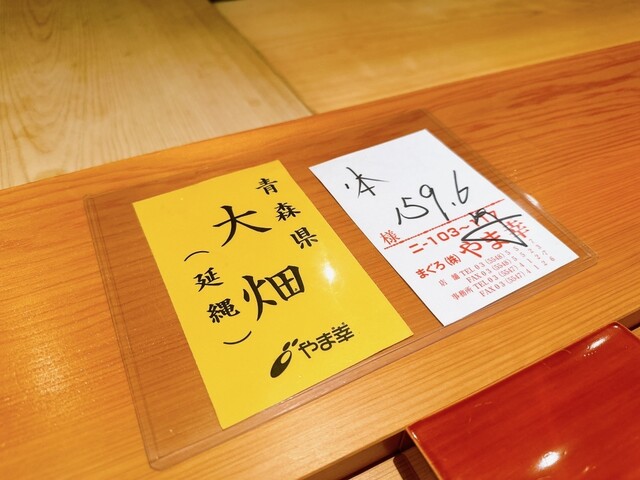 青森県
大畑
(延縄)
やま幸
159.6
様
まぐろ(株)やま幸
店舗 TEL 03(5548)
FAX 03(5548)
事務所 TEL 03(5547)
FAX 03(5547)